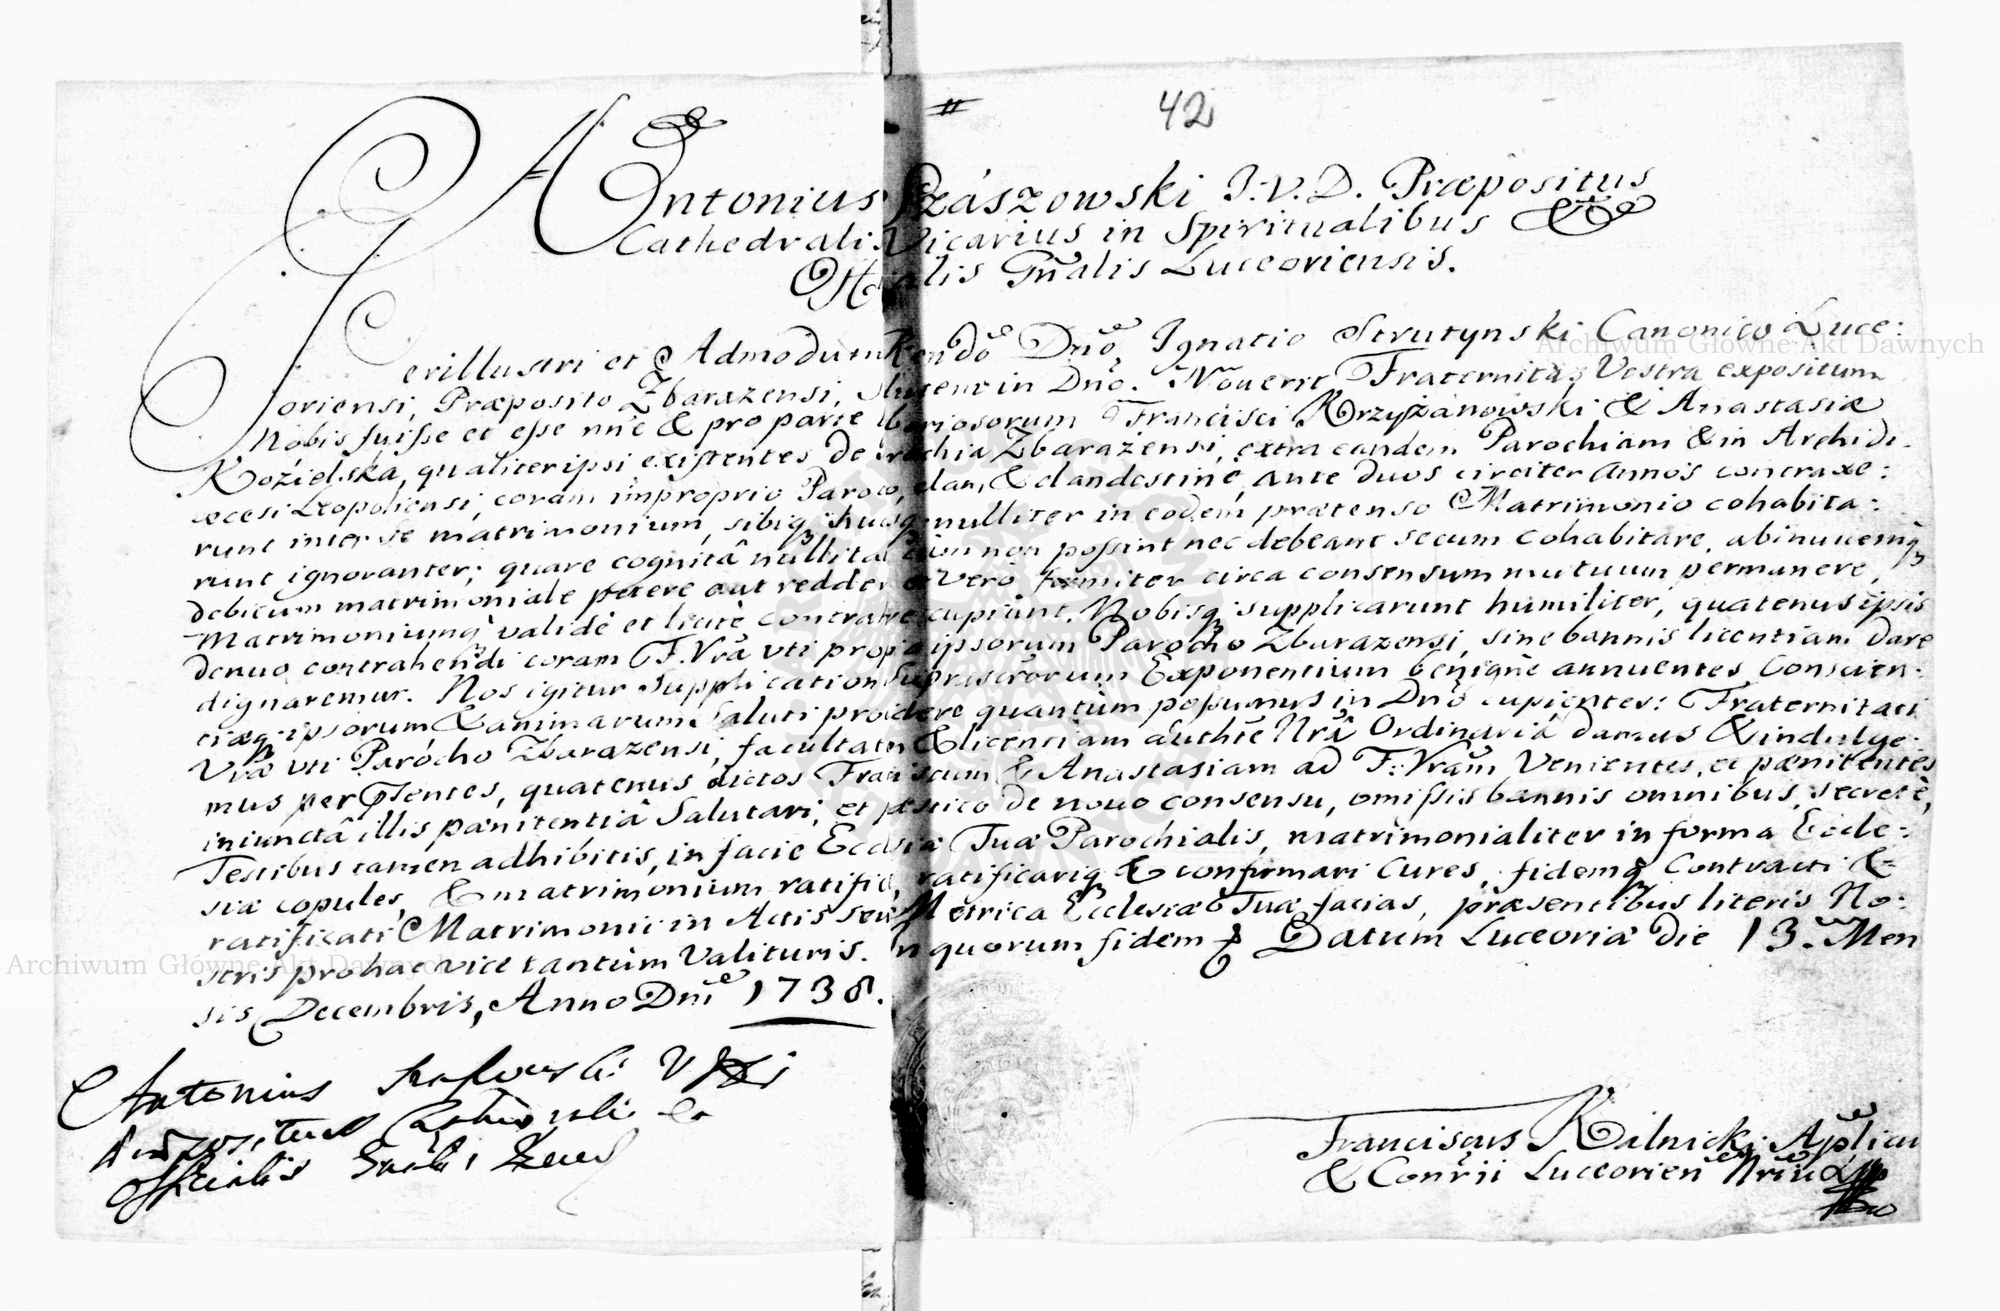 42
Antonius Szászowski J.V.D. Præpositus
Cathedralis Vicarius in Spiritualibus &
Offialis Gnãlis Luceoriensis.
Perillustri et Admodum Rendõ Dnõ Ignatio Strutynski Canonico Luce:
oriensi, Præposito Zbarazensi, Salutem in Dnõ. Noverit Fraternitas Vestra expositum
Nobis fuisse et esse nunc & pro parte laboriosorum Francisci Krzyżanowski & Anastasiæ
Kozielska, qualiter ipsi existentes de Parochia Zbarażensi, extra eandem Parochiam & in Archidi-
œcesi Leopoliensi, coram improprio Paroco, clam, & clandestinè, ante duos circiter Annos contraxe:
runt inter se matrimonium, sibiq husq nulliter in eodem prætenso Matrimonio cohabita:
runt ignoranter; quare cognitâ nullitate cum non possint nec debeant secum cohabitare, abinvicemq
debitum matrimoniale petere aut reddere et Verò firmiter circa consensum mutuum permanere,
Matrimoniumq validè et licitè contrahere cupiunt. Nobisq supplicarunt humiliter, quatenus ipsis
denuo contrahendi coram F. Vrã uti proprio ipsorum Parocho Zbarazensi, sine bannis licentiam dare
dignaremur. Nos igitur Supplicationi Suprascrorum Exponentium benignè annuentes, Conscien:
tiæq ipsorum & animarum Saluti providere quantùm possumus in Dnõ cupientes: Fraternitati
Vræ uti Parócho Zbarazensi, facultatem & licentiam authtẽ Nrâ Ordinariâ damus & indulge:
mus per Psentes, quatenus dictos Franciscum & Anastasiam ad F: Vram Venientes, et pœnitentes
iniunctâ illis pœnitentiâ Salutari, et præstito de novo consensu, omissis bannis omnibus, secretè,
Testibus tamen adhibitis, in facie Ecclesiæ Tuæ Parochialis, matrimonialiter in forma Eccle:
siæ copules, & matrimonium ratifices, ratificariq & confirmari Cures, fidemq Contracti &
ratificati Matrimonii in Actis seu Metrica Ecclesiæ Tuæ facias, præsentibus literis No:
stris pro hac vice tantùm Valituris. In quorum fidem Datum Luceoriæ Die 13. Men
sis Decembris, Anno Dnĩ 1738.
Antonius
Præpositus
Officialis
Franciscus Kilnicki Applicus
& Conrii Luceorien
Archiwum Główne Akt Dawnych
Archiwum Główne Akt Dawnych